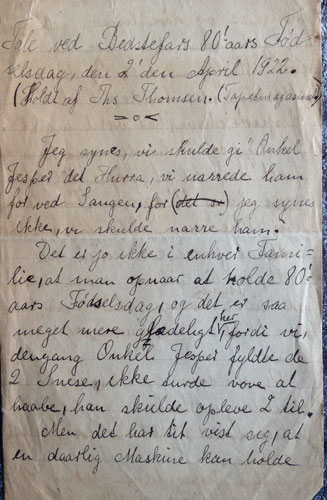 Tale ved Bedstefars 80' aars Fød-
selsdag, den 2'den April 1922.
(Holdt af Ths Thomsen. (Tapetmagasinet)
Jeg synes, vi skulde gi' Onkel
Jesper det Hurra, vi narrede ham
for ved Sangen, for (det er) jeg synes
ikke, vi skulde narre ham.
Det er jo ikke i enhver Fami-
lie, at man opnaar at holde 80'
aars Fødselsdag, og det er saa
meget mere glædeligt her, fordi vi,
dengang Onkel Jesper fyldte de
2 Snese, ikke turde vove at
haabe, han skulde opleve 2 til.
Men det har tit vist sig, at
en daarlig Maskine kan holde